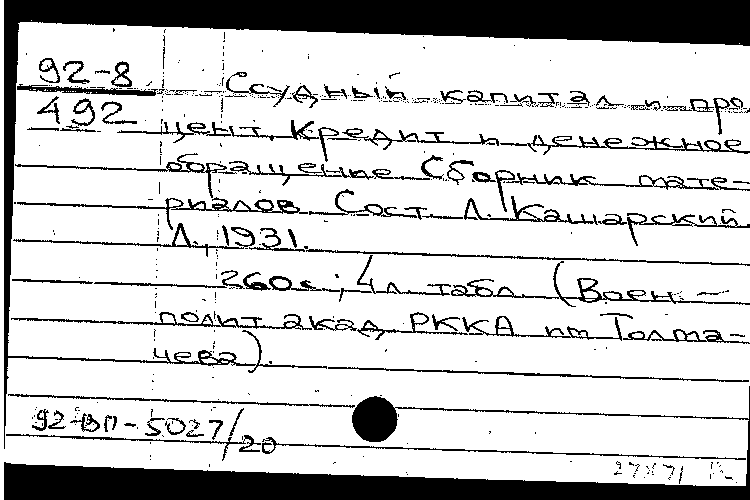 92-8
492
Ссудный капитал и про
цент. Кредит и денежное
обращение. Сборник мате-
риалов. Сост. Л. Кашарский.
Л., 1931.
260с.; 4л. табл. (Воен.-
полит акад. РККА им Толма-
чева).
92-ВП-5027/20
27 X 71